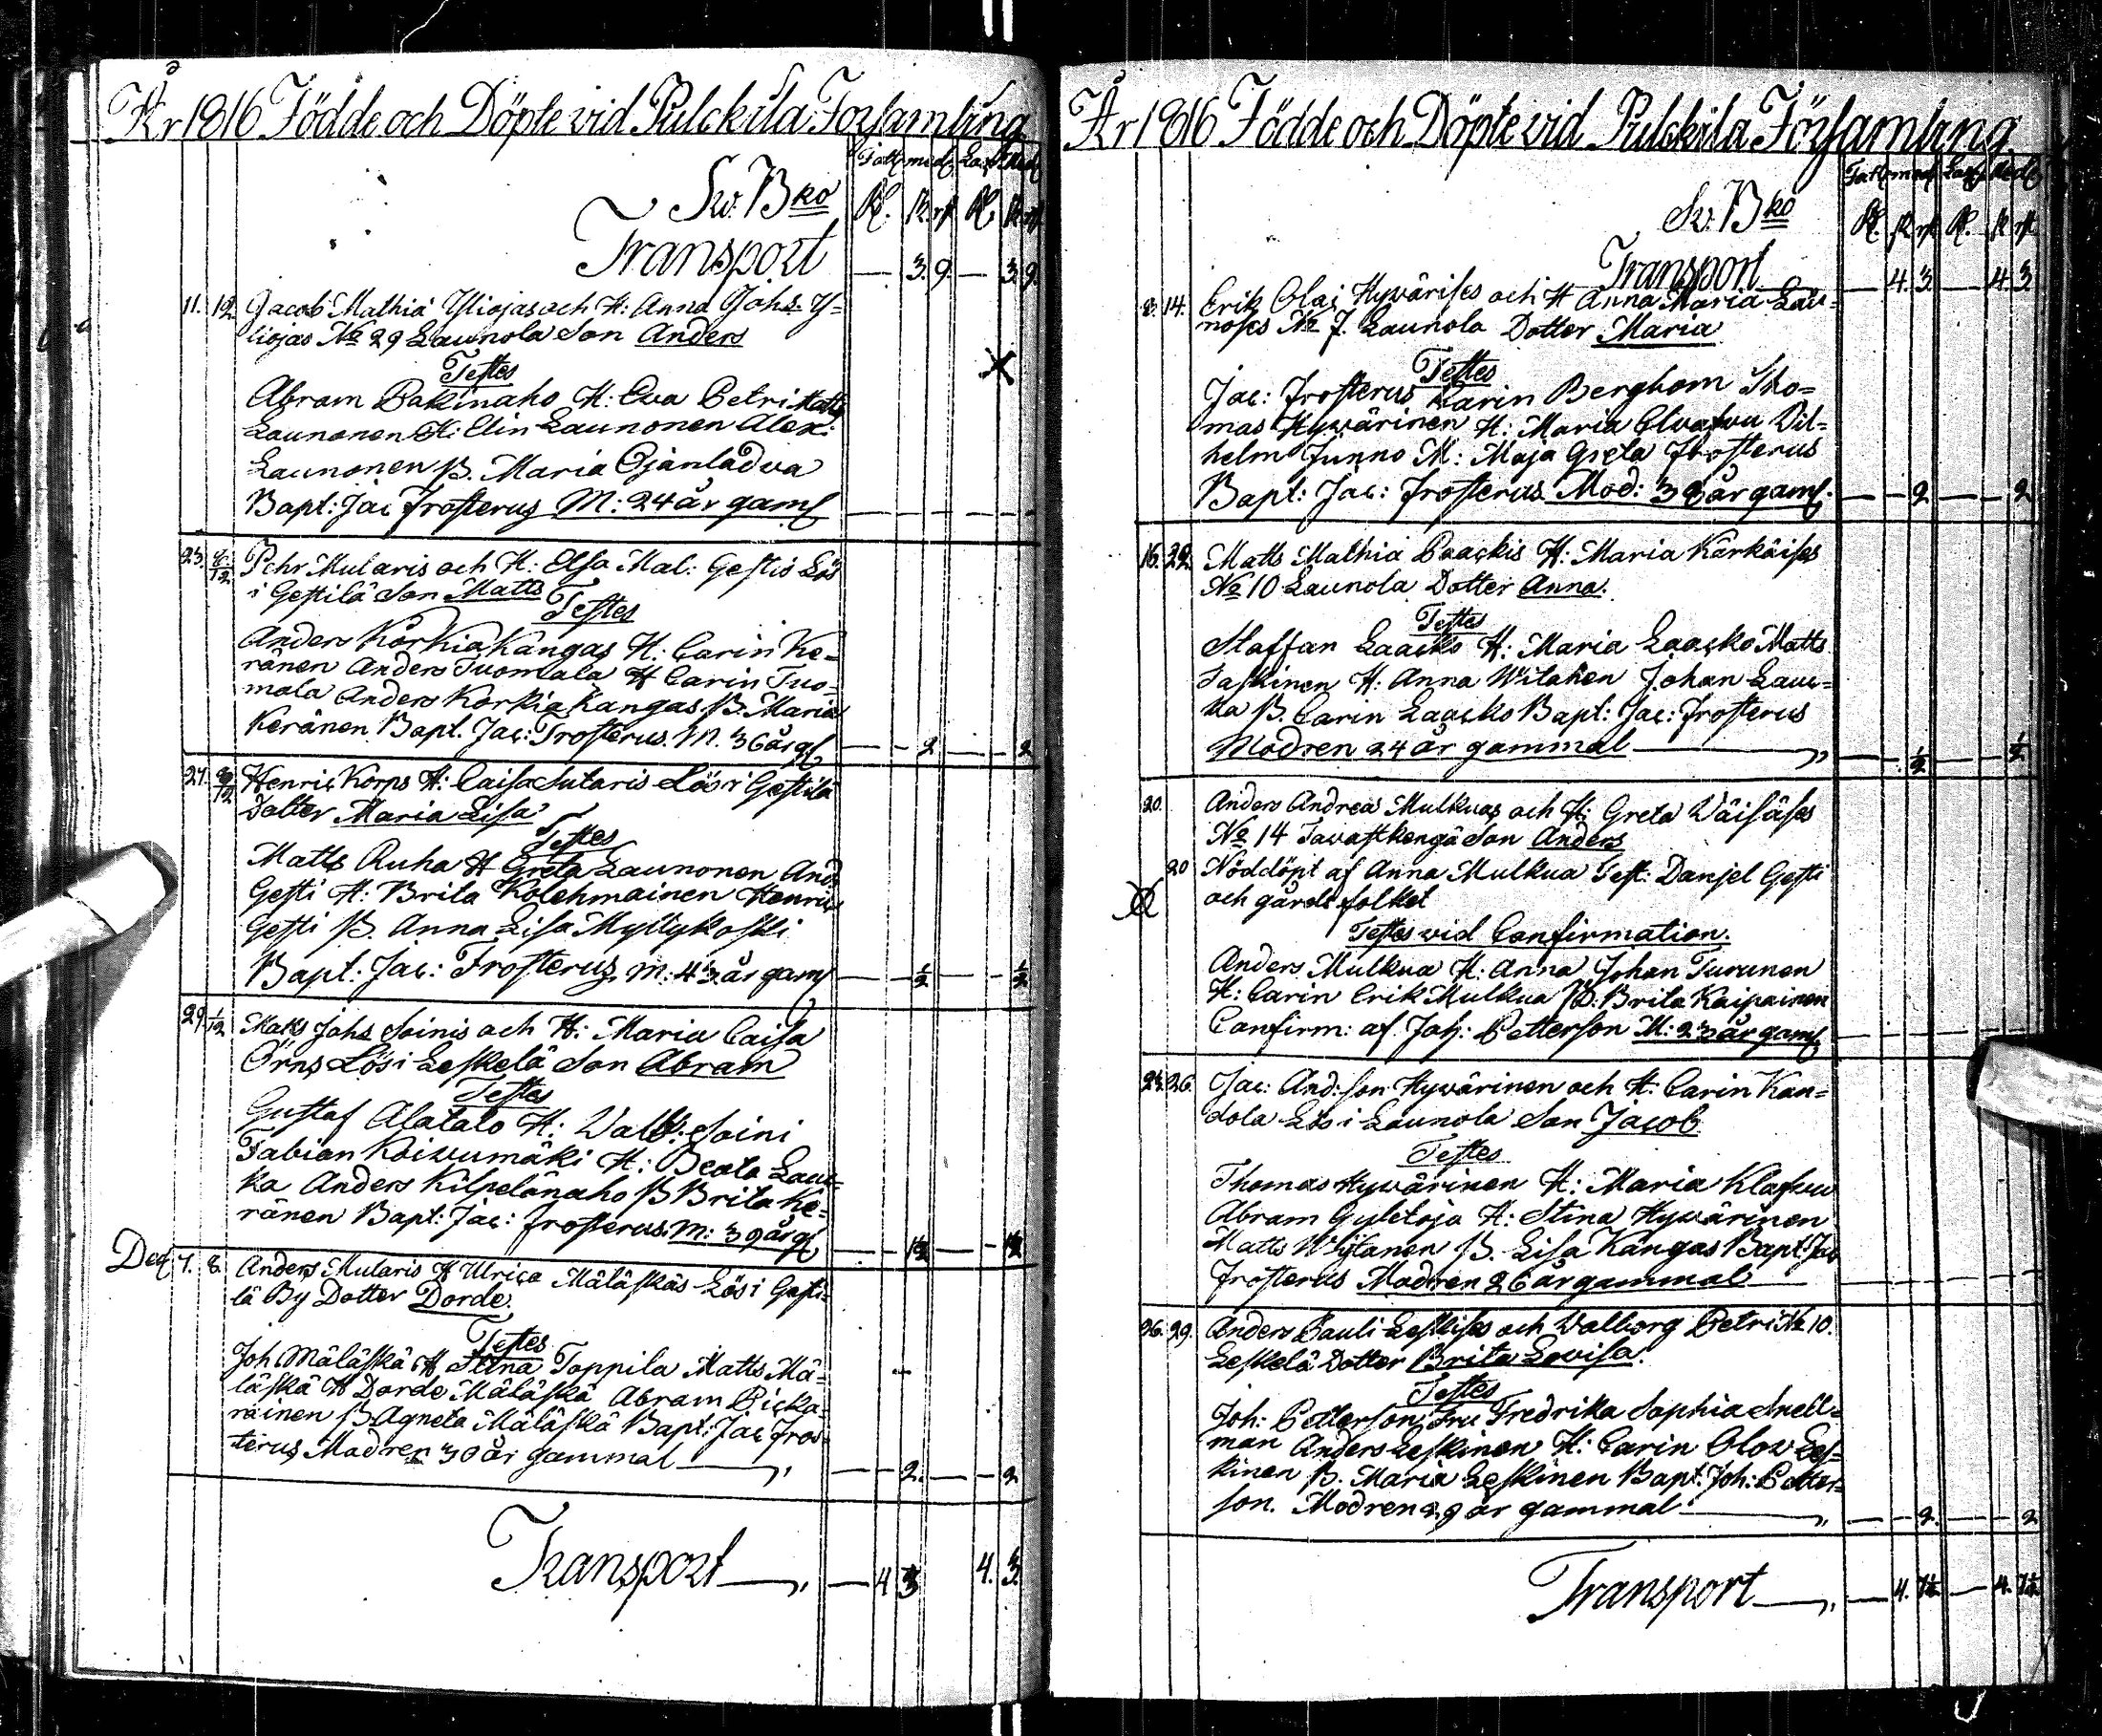 År 1816 Födde och Döpte vid Pulckila Församling
Fatt: med:
Sv. Bko Rd. R. rst Rd. R rst
Transport — 3. 9. — 3. 9
11. 12. Jacob Mathiæ Yliojas och H: Anna Johs Y=
liojas No 29 Launola Son Anders
Testes
Abram Pakinaho H: Eva Petri Matts
Launonen H: Elin Launonen Alex:
Launonen P. Maria Ojanladva
Bapt: Jac Frosterus M: 24 år gaml
23. Pehr Mularis och H: Elsa Mal: Gestis Lös
i Gestilä Son Matts
Testes
Anders Korkiakangas H: Carin Ke=
ränen Anders Tuomala H Carin Tuo=
mala Anders Korkiakangas P. Maria
Keränen Bapt. Jac: Frosterus. M. 36 år gl — 2 — 2
27. Henric Korps H: Caisa Sutaris Lös i Gestilä
Dotter Maria Lisa
Testes
Matts Ruha H Greta Launonen And
Gesti H: Brita Kolehmainen Henric
Gesti P. Anna Lisa Myllykoski
Bapt: Jac: Frosterus, M: 43 år gaml — ½ — ½
29. 1/12 Matts Johs Soinis och H: Maria Caisa
Örns Lös i Leskelä Son Abram
Testes
Gustaf Alatalo H: Walb: Soini
Fabian Koivumäki H: Beata Lauc=
ka Anders Kilpelänaho P Brita Ke=
ränen Bapt: Jac: Frosterus. M: 39 år gl
Dec 7. 8. Anders Mularis H Ulrica Mäläskäs Lös i Gesti=
lä By Dotter Dorde.
Testes
Joh Mäläskä H Stina Toppila Matts Mä=
läskä H Dorde Mäläskä Abram Picka=
räinen P. Agneta Mäläskä Bapt: Jac Fros=
terus Modren 30 år gammal — 2. — 2
Transport — 4 3 4. 3.
År 1816 Födde och Döpte vid Pulckila Församling
Fatt: med:
Sv. Bko Rd. R rst Rd. R rst
Transport — 4. 3 — 4 3
8. 14. Erik Olai Hyvärises och H Anna Maria Lau=
noses No 7. Launola Dotter Maria
Testes
Jac: Frosterus Karin Berghom Tho=
mas Hyvärinen H: Maria Vil=
helm Junno M: Maja Greta Frosterus
Bapt: Jac: Frosterus Mod: 38 år gaml. — 2 — 2
16. 22. Matts Mathiæ Laackis H: Maria Kärkäises
No 10 Launola Dotter Anna.
Testes
Staffan Laacko H: Maria Laacko Matts
Saskinen H: Anna Witanen Johan Lauc=
ka P. Carin Laacko Bapt: Jac: Frosterus
Modren 24 år gammal — ½ — ½
20. Anders Andreæ Mulkuas och H: Greta Wäisäses
No 14 Tavastkengä Son Anders
20 Nöddöpt af Anna Mulkua Test: Danjel Gesti
och gårds folket
Testes vid Confirmation.
Anders Mulkua H: Anna Johan Turunen
H: Carin Erik Mulkua P: Brita Kaipainen
Confirm: af Joh: Petterson M: 23 år gaml
24. 26. Jac: And:son Hyvärinen och H: Carin Kan=
dola Lös i Launola Son Jacob
Testes
Thomas Hyvärinen H: Maria
Abram Gyletoja H: Stina Hyvärinen
Matts Witanen P. Lisa Kangas Bapt: Jac
Frosterus Modren 26 år gammal
26. 29. Anders Pauli Leskises och Walborg Petri No 10.
Leskelä Dotter Brita Lovisa.
Testes
Joh: Petterson, Fru Fredrika Sophia Snell=
man Anders Leskinen H: Carin Olov Les=
kinen P. Maria Leskinen Bapt: Joh: Petter=
son. Modren 29 år gammal — 2. — 2
Transport — 4. 7½ — 4. 7½